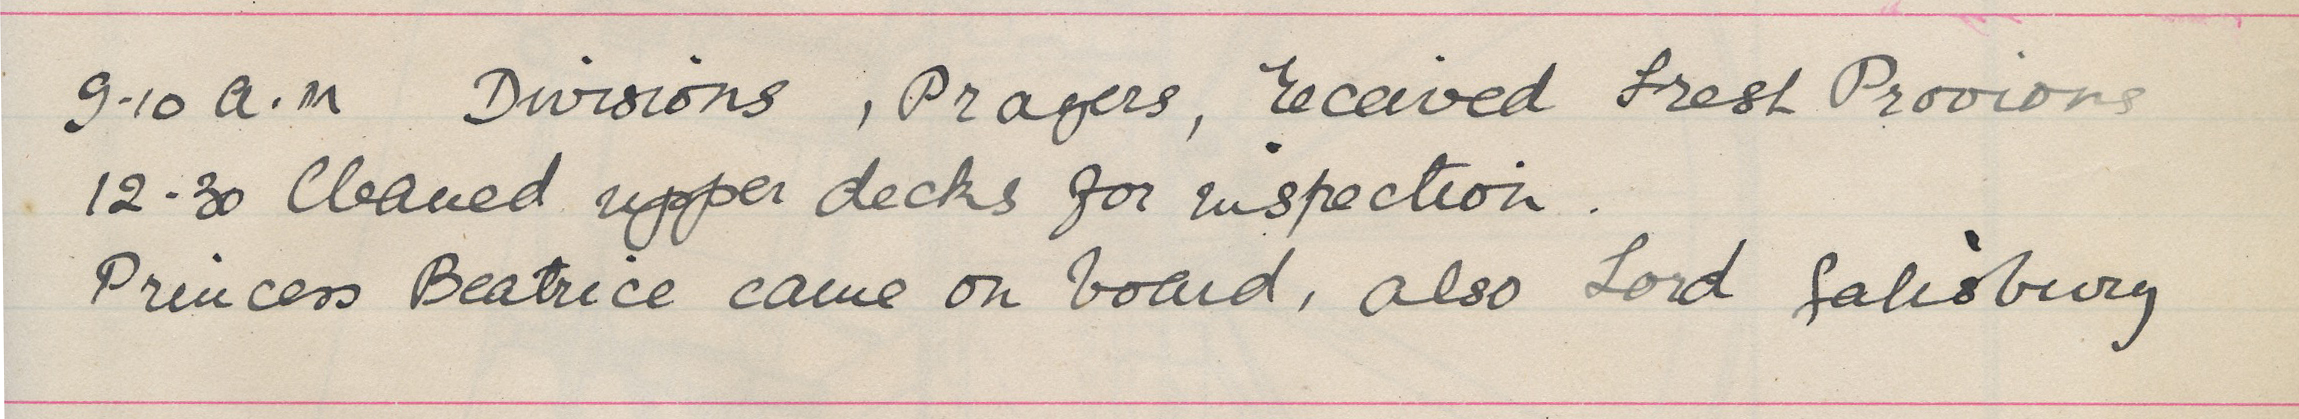 9-10 a.m Divisions , Prayers, received Fresh Provions
12-30 Cleaned upper decks for inspection.
Princess Beatrice came on board, also Lord Salisbury